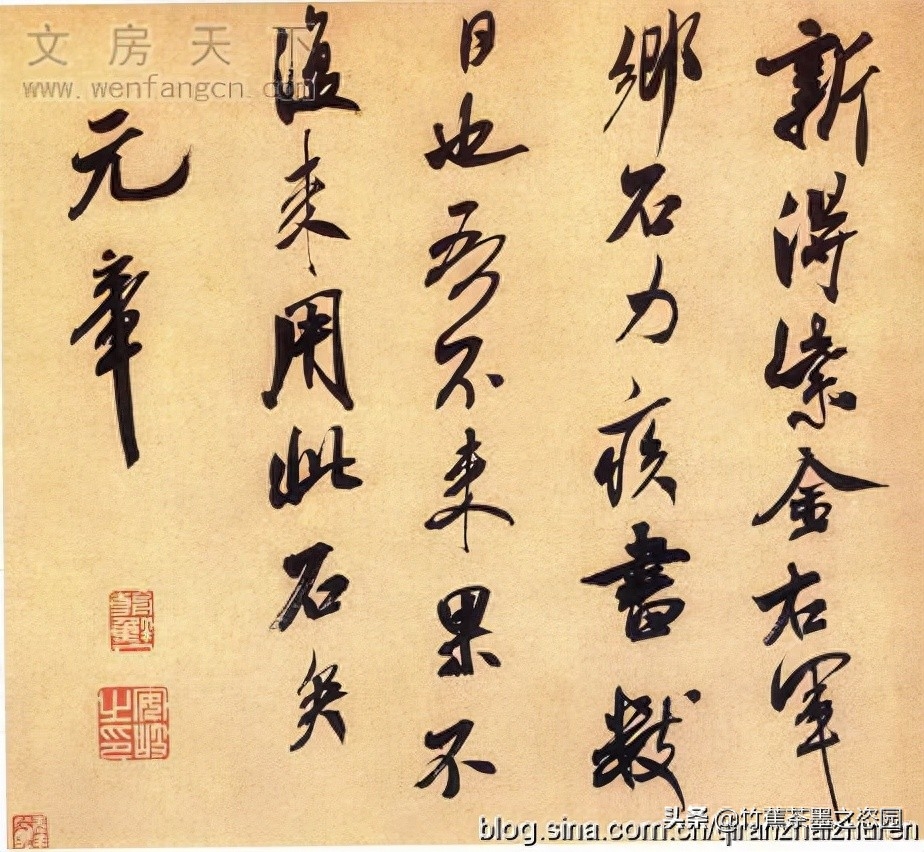 新得紫金右軍
鄉石力疾書數
日也吾不来果不
復来用此石矣
元章
文房天下
www.wenfangcn.com
头条 @竹蕉茶墨之恣园
blog.sina.com.cn/qianzhaizhuren